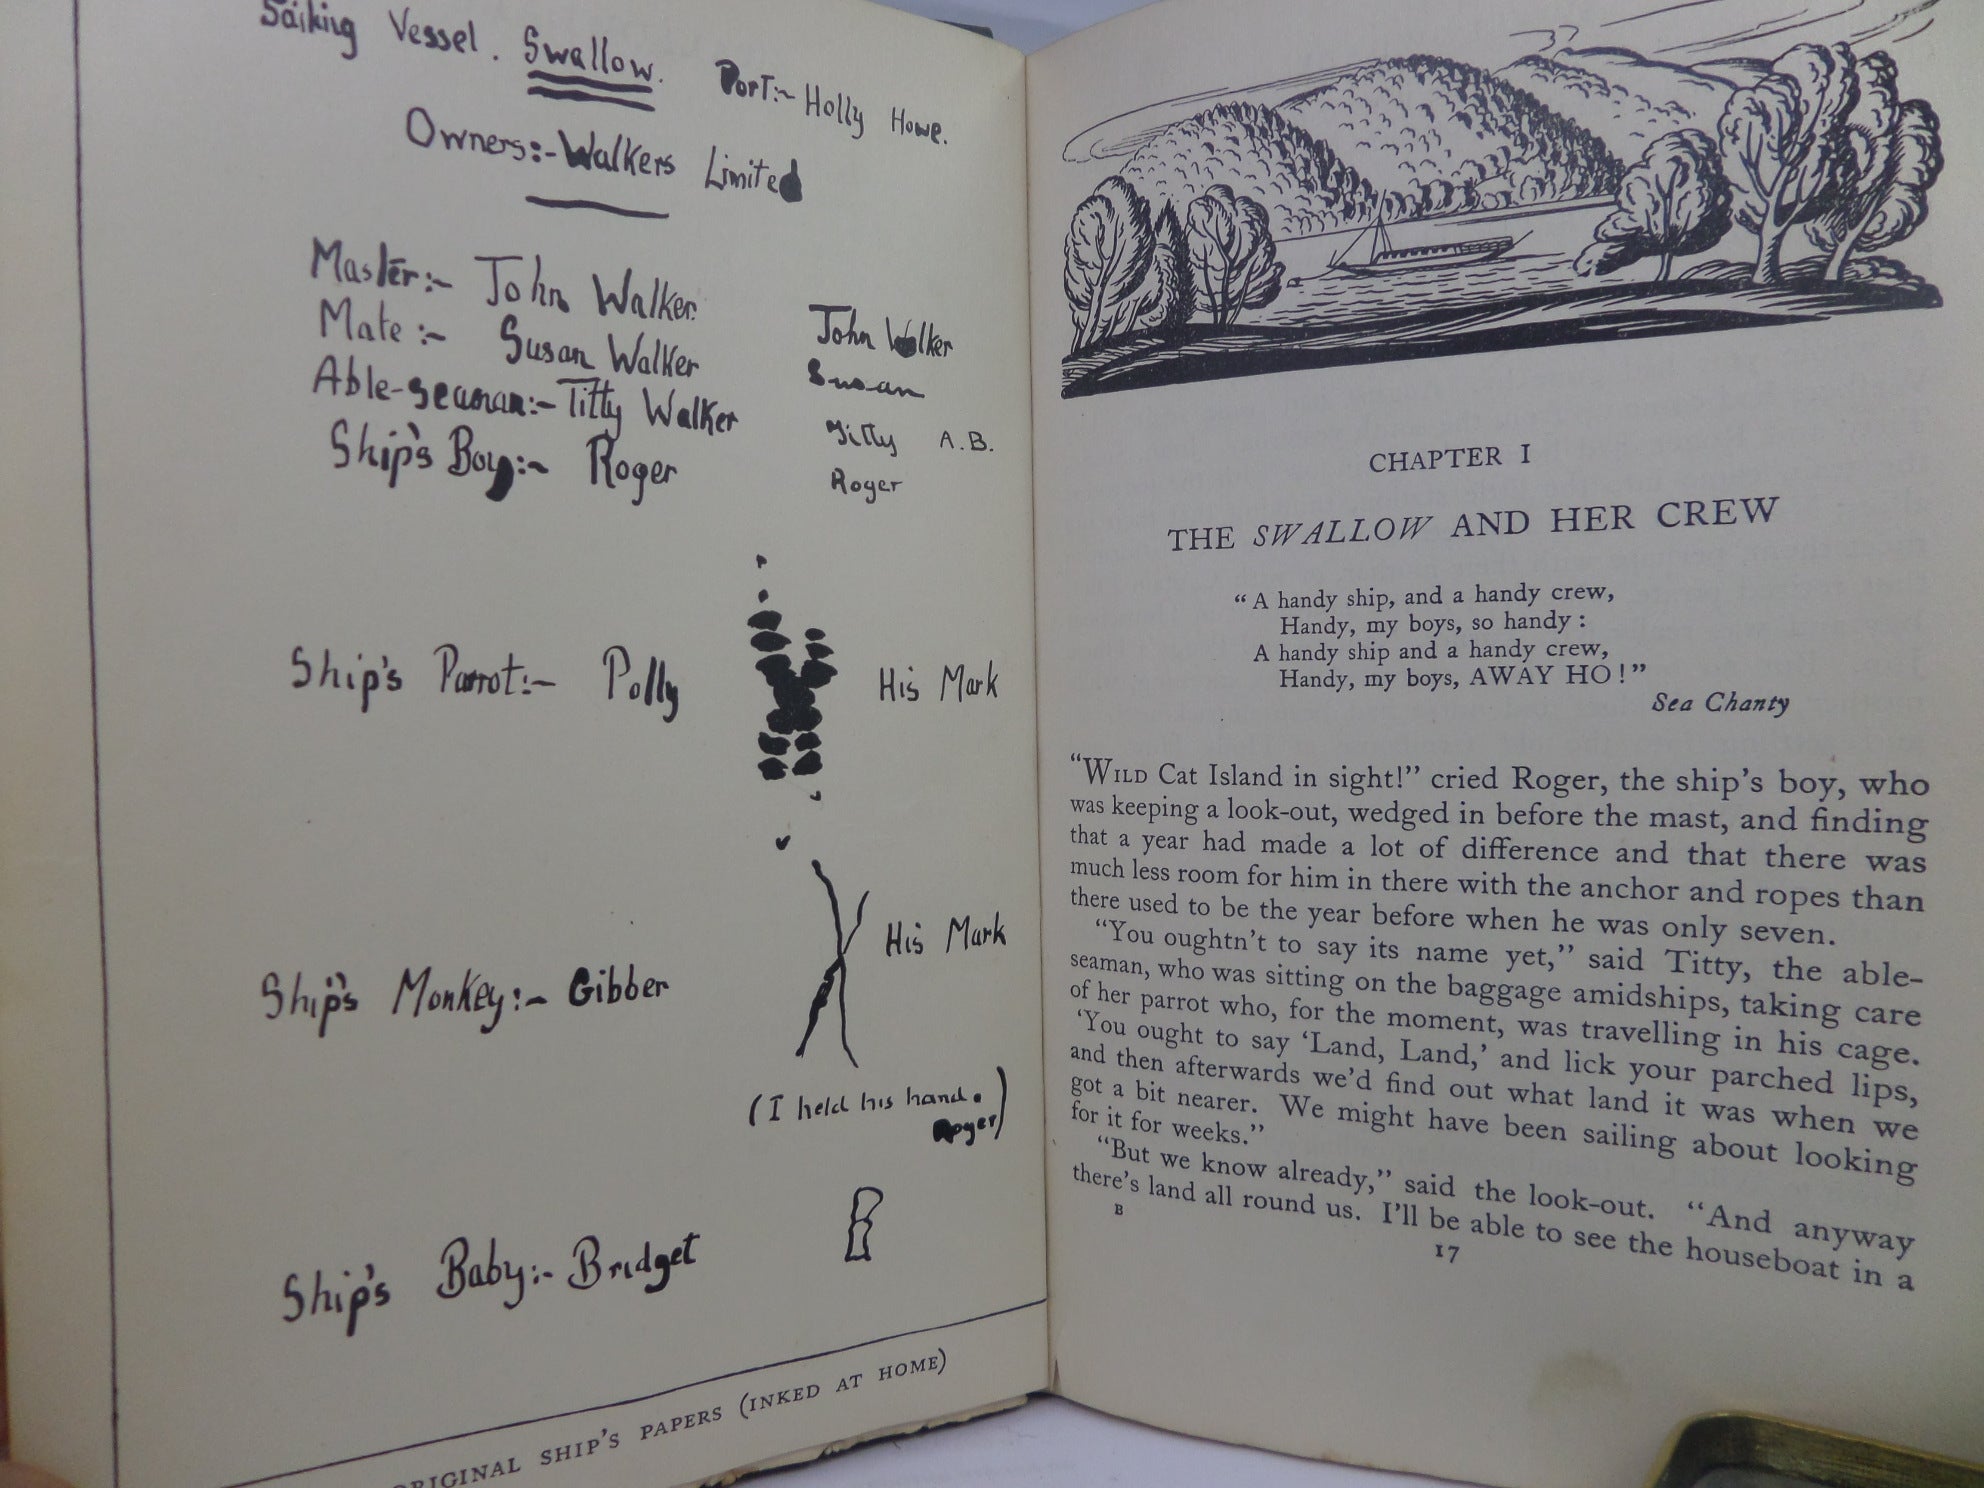 Sailing Vessel. Swallow. Port:- Holly Howe.
Owners:- Walkers Limited
Master:- John Walker. John Walker
Mate:- Susan Walker Susan
Able-seaman:- Titty Walker Titty A.B.
Ship's Boy:- Roger Roger
Ship's Parrot:- Polly His Mark
Ship's Monkey:- Gibber His Mark
(I held his hand.
Roger)
Ship's Baby:- Bridget
ORIGINAL SHIP'S PAPERS (INKED AT HOME)
CHAPTER I
THE SWALLOW AND HER CREW
“A handy ship, and a handy crew,
Handy, my boys, so handy:
A handy ship and a handy crew,
Handy, my boys, AWAY HO!”
Sea Chanty
“WILD Cat Island in sight!” cried Roger, the ship's boy, who
was keeping a look-out, wedged in before the mast, and finding
that a year had made a lot of difference and that there was
much less room for him in there with the anchor and ropes than
there used to be the year before when he was only seven.
“You oughtn't to say its name yet,” said Titty, the able-
seaman, who was sitting on the baggage amidships, taking care
of her parrot who, for the moment, was travelling in his cage.
‘You ought to say ‘Land, Land,’ and lick your parched lips,
and then afterwards we'd find out what land it was when we
got a bit nearer. We might have been sailing about looking
for it for weeks.”
“But we know already,” said the look-out. “And anyway
there's land all round us. I'll be able to see the houseboat in a
B
17